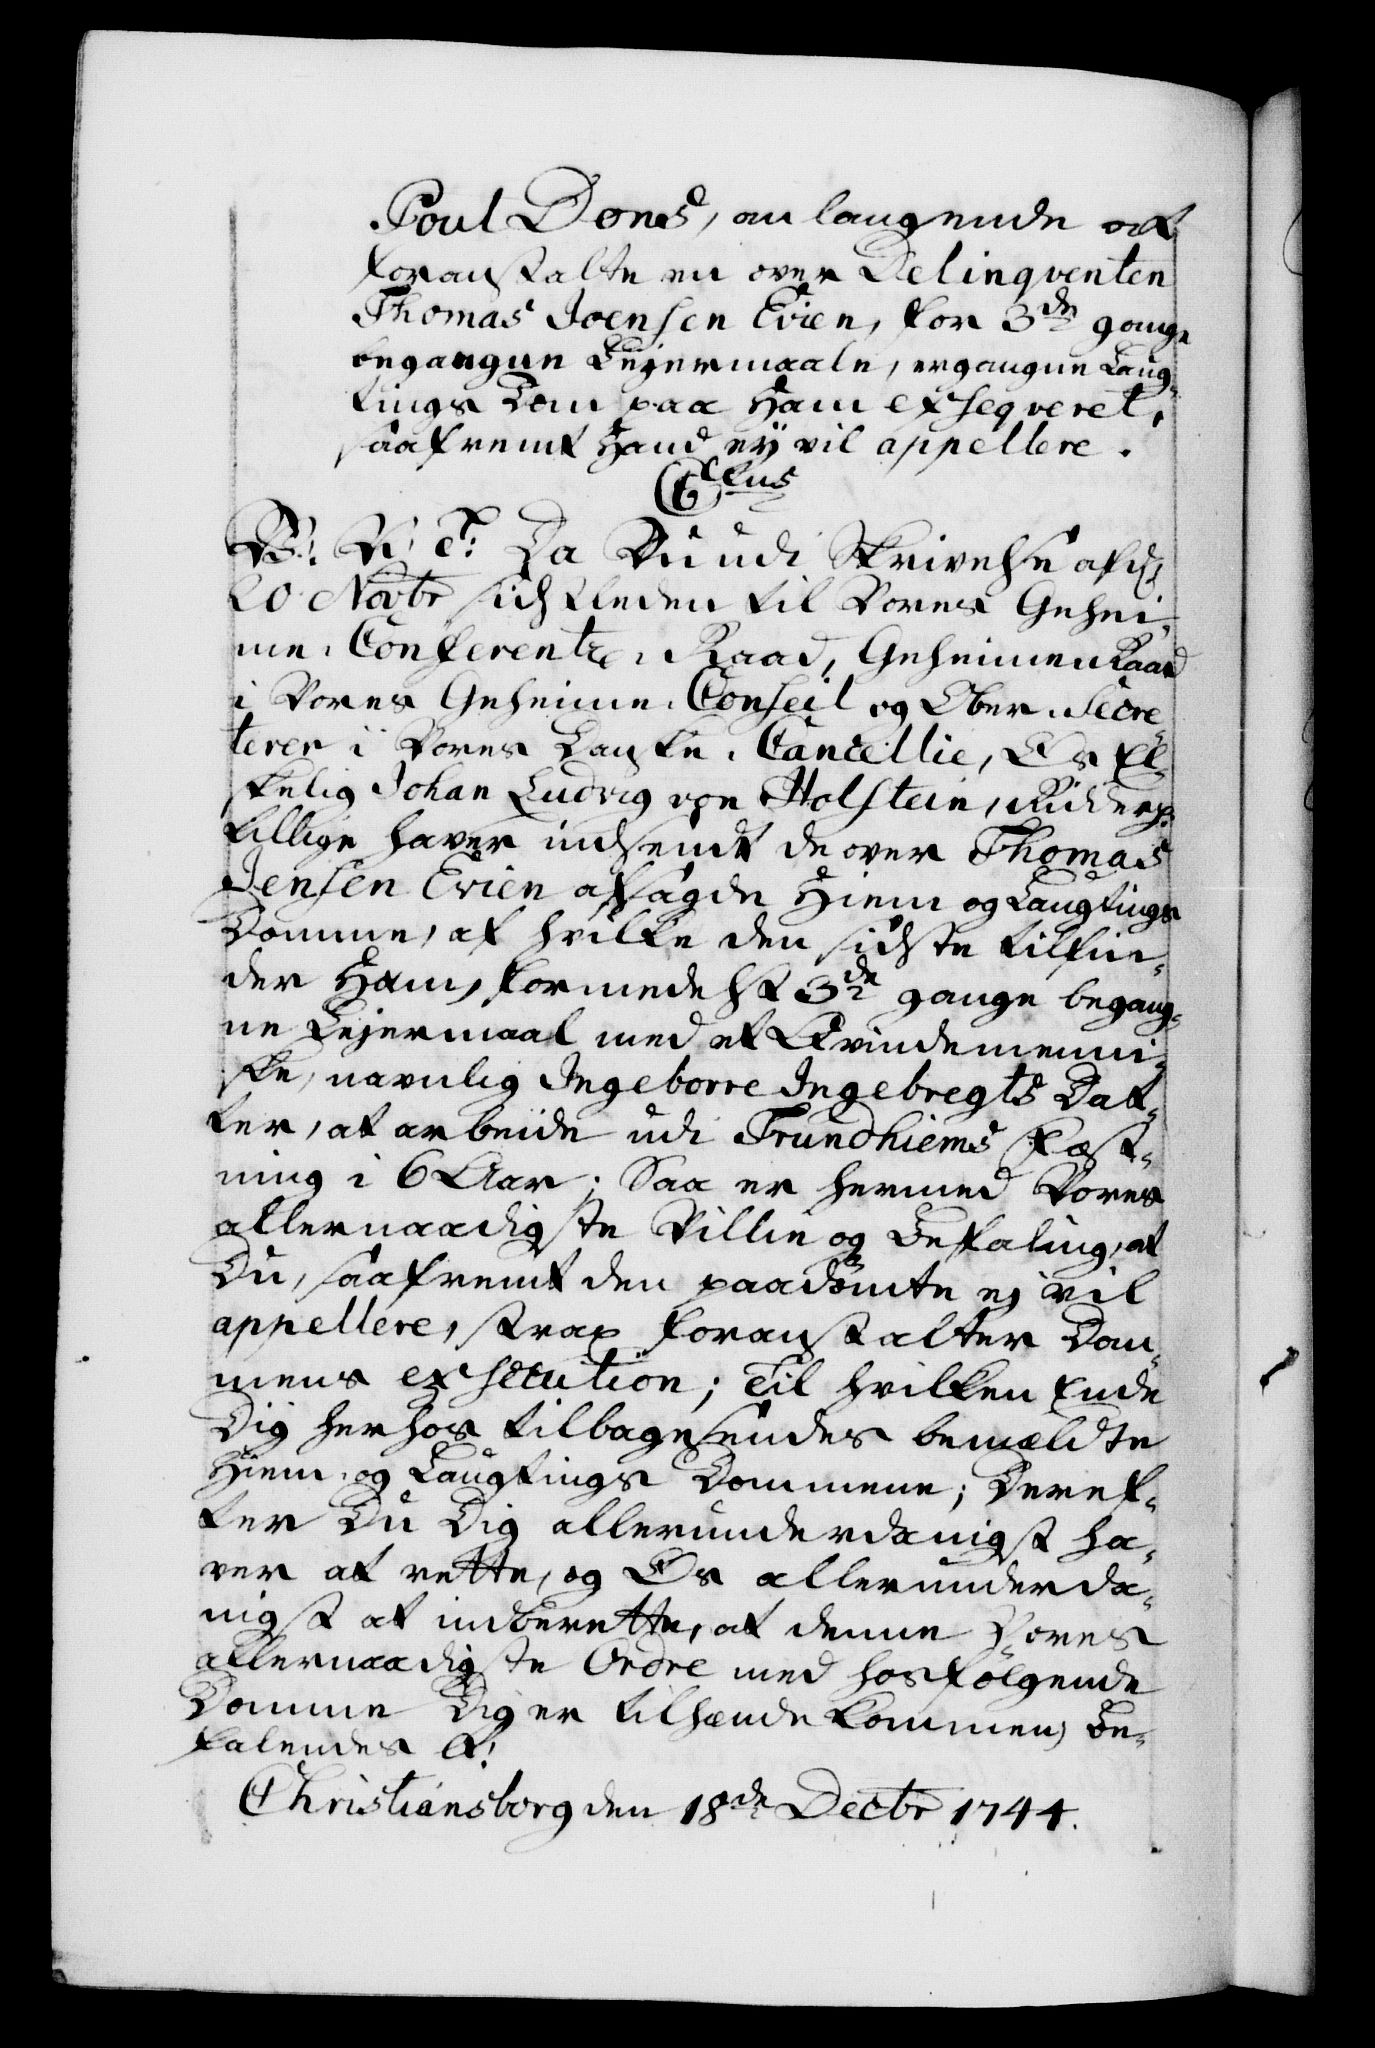 Poul Dons, anlangende at
foranstalte en over Delinqventen
Thomas Joensen Evien, for 3de gange
begangne Leyermaale, ergangne Laug-
tings Dom paa Ham exseqveret,
saafremt Hand ey vil appellere.
C6tus
V: V: c: Da Du udi Skrivelse af d:
20 Novbr sidstleden til Vores Gehei-
me-Conferentz-Raad, Geheimen Raad
i Vores Geheime-Conseil og Ober-Secre-
terer i Vores Danske-Cancellie, Os El-
skelig Johan Ludvig von Holstein, Ridder p:
tillige haver indsendt de over Thomas
Jensen Evien afsagde Hiem og Laugtings
Domme, af hvilke den sidste tilfin-
der Ham, formedelst 3de gange begang-
ne Leyermaal med et Qvindemenni-
ske, navnlig Ingeborre Ingebregts Dat-
ter, at arbeide udi Trundhiems Fæst-
ning i 6 Aar; Saa er hermed Vores
allernaadigste Villie og Befaling, at
Du, saafremt den paadömte ej vil
appellere, strax foranstalter Dom-
mens exsecution; Til hvilken Ende
Dig herhos tilbagesendes bemældte
Hiem- og Laugtings Dommene; Deref-
ter Du Dig allerunderdanigst ha-
ver at rette, og Os allerunderda-
nigst at indberette, at denne Vores
allernaadigste Ordre med hosfølgende
Domme Dig er tilhænde kommen, Be-
falendes &:
Christiansborg den 18de Decbr 1744.